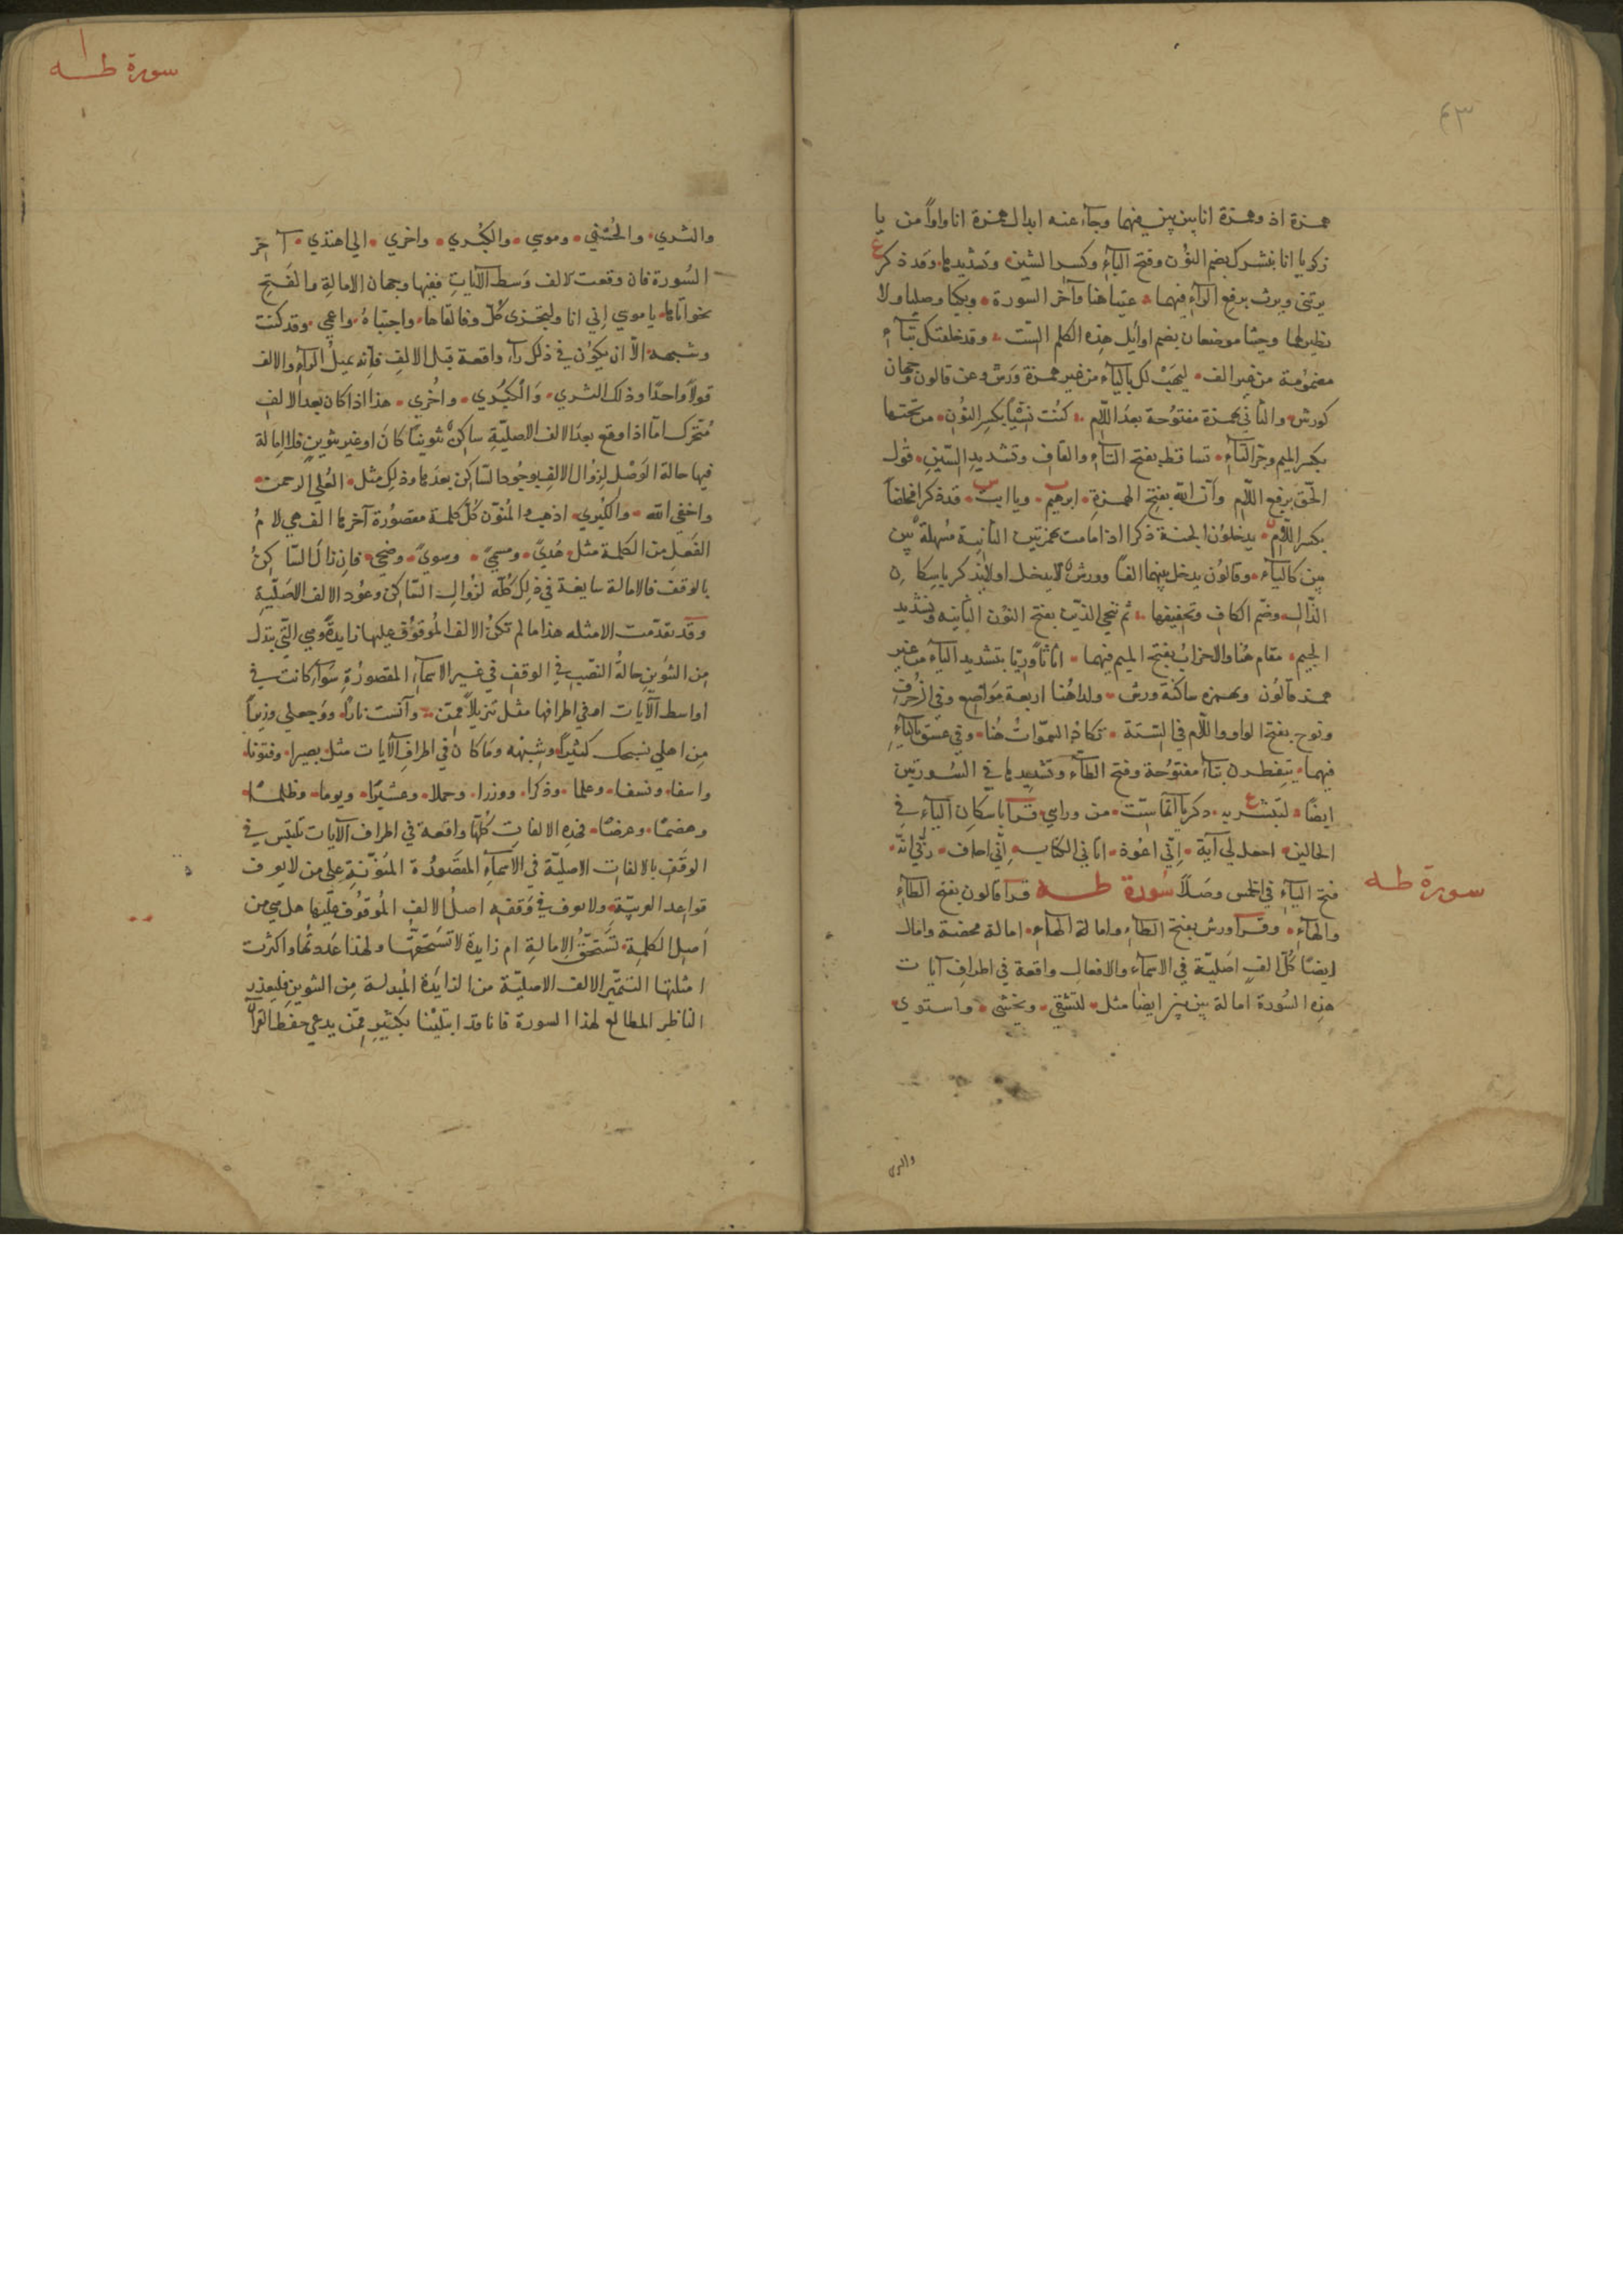 ٤٣
همزة اذ وهمزة انا بين بين فيهما وجاء عنه ابدال همزة انا واوًا من يا
زكريا انا نبشرك بضم النون وفتح الباء وكسر الشين وتشديدها وقد ذكر
يرثنى ويرث برفع الراء فيهما عتيا هنا وآخر السورة وبكيا وصليا ولا
نظير لها وجثيا موضعان بضم اوايل هذه الكلم الست وقد خلقتك بتاء
مضمومة من غير الف ليهب لك بالياء من غير همزة ورش وعن قالون وجهان
كورش والثاني بهمزة مفتوحة بعد اللام كنت نسيًا بكسر النون من تحتها
بكسر الميم وجر التاء تساقط بفتح التاء والقاف وتشديد السين قول
الحق برفع اللام وأن الله بفتح الهمزة ابرهيم ويا ابت قد ذكرا مخلصًا
بكسر اللام يدخلون الجنة ذكر ااذا ما مت بهمزتين الثانية مسهلة بين
بين كالياء وقالون يدخل بينهما الفًا وورش لا يدخل اولا يذكر باسكان
الذال وضم الكاف وتخفيفها ثم ننجي الذين بفتح النون الثانيه وتشديد
الجيم مقام هنا والاحزاب بفتح الميم فيهما اثاثًا وريّا بتشديد الياء من غير
همزة قالون وبهمزه ساكنة ورش ولدا هنا اربعة مواضع وفي الزخرف
ونوح بفتح الواو واللام في الستة تكاد السموات هنا وفي عسق بالياء
فيهما يتفطرن بتاء مفتوحة وفتح الطاء وتشديدها في السورتين
ايضًا لتبشر به ذكر ياآتها ست من وراي قرا باسكان الياء في
الحالين اجعل لي آية اني اعوذ اتاني الكتاب اني اخاف ربي انه
فتح الياء في الخمس وصلًا سورة طه قرا قالون بفتح الطاء
سورة طه
والهاء وقرا ورش بفتح الطاء وامالة الهاء امالة محضة وامال
ايضًا كل الف اصلية في الاسماء والافعال واقعة في اطراف آيات
هذه السورة امالة بين بين ايضًا مثل لتشقي ويخشى واستوى
والثرى
سورة طه
والثري والحسني وموسي والكبري واخري الي اهتدي آخر
السورة فان وقعت الالف وسط الآيات ففيها وجهان الامالة والفتح
نحو اتاها يا موسي اني انا ولتجزى كل وفالقاها واجتباه واعمي وقد كنت
وشبهه الا ان يكون في ذلك راء واقعة قبل الالف فانه يميل الراء والالف
قولًا واحدًا وذلك الثري والكبري واخري هذا اذا كان بعد الالف
متحرك اما اذا وقع بعد الالف الاصلية ساكن تنوينًا كان او غير تنوين فلا امالة
فيها حالة الوصل لزوال الالف بوجود الساكن بعدها وذلك مثل العلي الرحمن
واخفي الله والكبري اذهب والمنون كل كلمة مقصورة آخرها الف هي لام
الفعل من الكلمة مثل هديً ومسميً وسويً وضحي فان زال الساكن
بالوقف فالامالة سايغة في ذلك كله لزوال الساكن وعود الالف الاصلية
وقد تقدمت الامثله هذا ما لم تكن الالف الموقوف عليها زايدة وهي التي تبدل
من التنوين حالة النصب في الوقف في غير الاسماء المقصورة سواء كانت في
اواسط الآيات او في اطرافها مثل تنزيلًا ممن وآنست نارًا واجعل لي وزيرًا
من اهلي نسبحك كثيرًا وشبهه وما كان في اطراف الآيات مثل بصيرا وفتونا
واسفا ونسفا وعلما وذكرا ووزرا وحملا وعشرًا ويوما وظلمًا
وهضمًا وعزمًا فهذه الالفات كلها واقعة في اطراف الآيات تلتبس في
الوقف بالالفات الاصلية في الاسماء المقصورة المنونة على من لا يعرف
قواعد العربية ولا يعرف في وقفه اصل الالف الموقوف عليها هل هي من
اصل الكلمة تستحق الامالة ام زايدة لا تستحقها ولهذا عددتها واكثرت
امثلتها لتتميز الالف الاصلية من الزايدة المبدلة من التنوين فليعذر
الناظر المطالع لهذا السورة فانا قد ابتلينا بكثير ممن يدعي حفظ القرآن